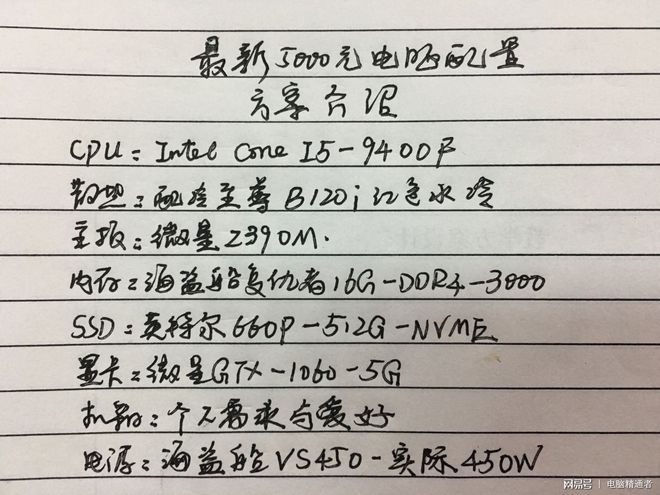 最新5000元电脑配置
方案介绍
CPU：Intel Core I5-9400F
散热：酷冷至尊B120i红色水冷
主板：微星Z390M.
内存：海盗船复仇者16G-DDR4-3000
SSD：英特尔660P-512G-NVME
显卡：微星GTX-1060-5G
机箱：个人需求与爱好
电源：海盗船VS450-实际450W
网易号 | 电脑精通者